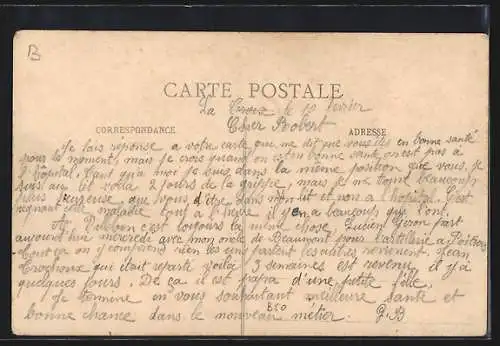 B
CARTE POSTALE
La Croix le 19 février
CORRESPONDANCE
Cher Robert
ADRESSE
Je fais réponse a votre carte que me dit que vous êtes en bonne santé
pour le moment, mais je crois quand on est en bonne santé on est pas a
l'hôpital. Tant qu'a moi je suis dans la même position que vous, je
suis au lit voila 2 jours de la grippe, mais je me trouve beaucoup
plus heureuse que vous d'être dans mon lit et non a l'hôpital. C'est
régnant cette maladie tout a l'heure il y en a beaucoup que l'ont.
A est toujours la même chose, Lucien Giron part
aujourd'hui mercredi avec mon oncle de Beaumont pour l'artillerie a Poitiers
tout ça on y comprend rien les uns partent les autres reviennent. Jean
qui était reparti voila 3 semaines est revenu il y a
quelques jours. De ça il est papa d'une petite fille.
Je termine en vous souhaitant meilleure santé et
bonne chance dans le nouveau métier. G.B
B50